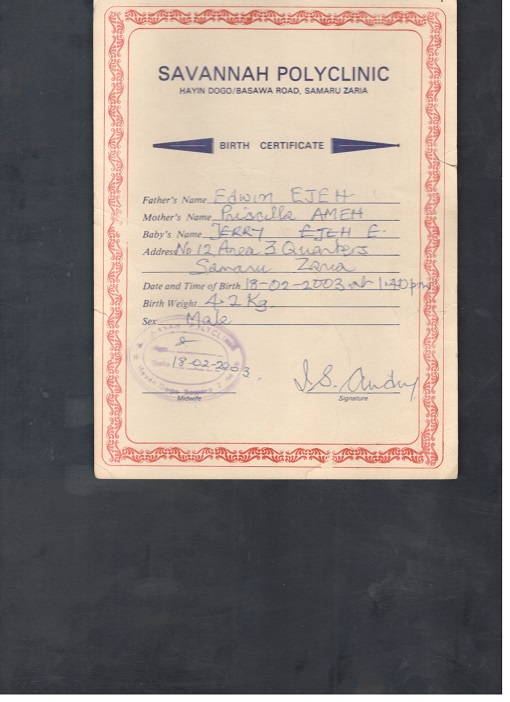 SAVANNAH POLYCLINIC
HAYIN DOGO/BASAWA ROAD, SAMARU ZARIA
BIRTH CERTIFICATE
Father's Name Edwin EJEH
Mother's Name Priscilla AMEH
Baby's Name JERRY EJEH E.
Address No 12 Area 3 Quarters
Samaru Zaria
Date and Time of Birth 18-02-2003 at 1:40pm
Birth Weight 4.2 Kg
Sex Male
POLYCLINIC
18-02-2003
Midwife
Signature